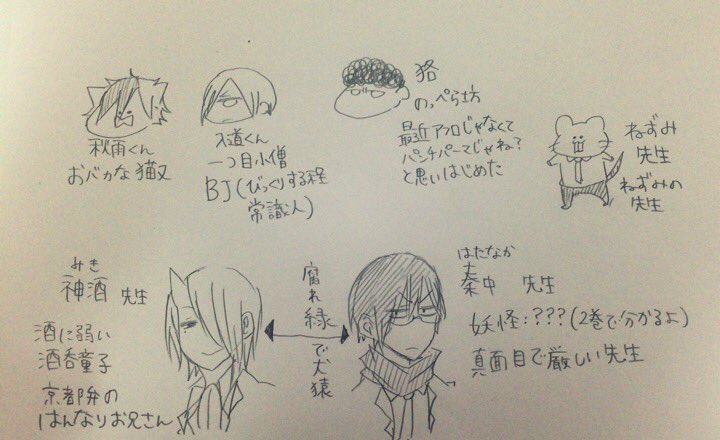 秋雨くん
おバカな猫又
入道くん
一つ目小僧
BJ(びっくりする程
常識人)
狢
のっぺら坊
最近アフロじゃなくて
パンチパーマじゃね?
と思いはじめた
ねずみ
先生
ねずみの
先生
みき
神酒 先生
酒に弱い
酒呑童子
京都弁の
はんなりお兄さん
腐れ縁で犬猿
はたなか
秦中 先生
妖怪:???(2巻で分かるよ)
真面目で厳しい先生